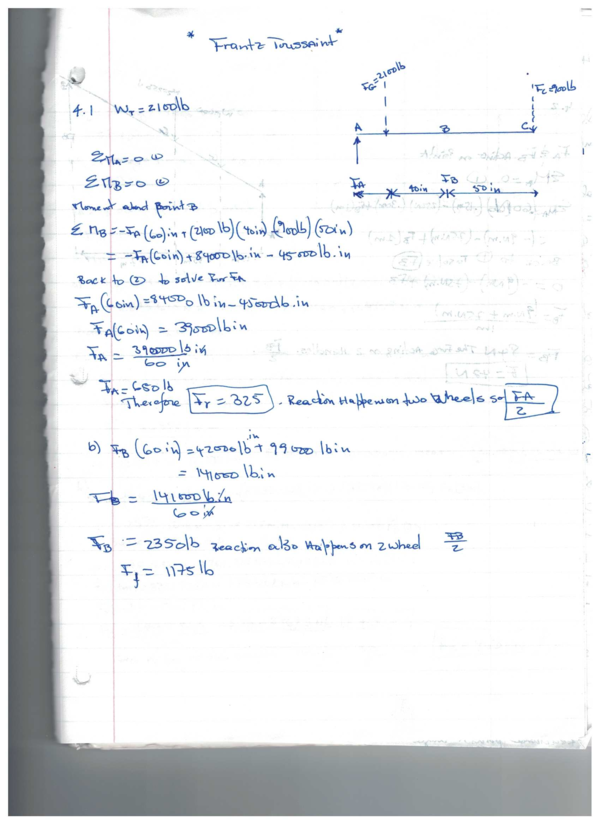 * Frantz Toussaint *
4.1 W_T = 2100lb
FG=2100lb
FC=900lb
A B C
FA 40in FB 50in
ΣMA=0 ①
ΣMB=0 ②
Moment about point B
ΣMB=-FA(60)in+(2100 lb)(40in)-(900lb)(50in)
= -FA(60in)+84000lb.in-45000lb.in
Back to ② to solve For FA
FA(60in)=84000 lb in-45000lb.in
FA(60in) = 39000lbin
FA = 390000 lb in / 60 in
FA=650 lb
Therefore Fr = 325. Reaction Happens on two wheels so FA/2
b) FB (60in)=42000lb in + 99000 lbin
= 141000 lb.in
FB = 141000lb.in / 60in
FB = 2350lb reaction also Happens on 2 wheel FB/2
Ff = 1175 lb